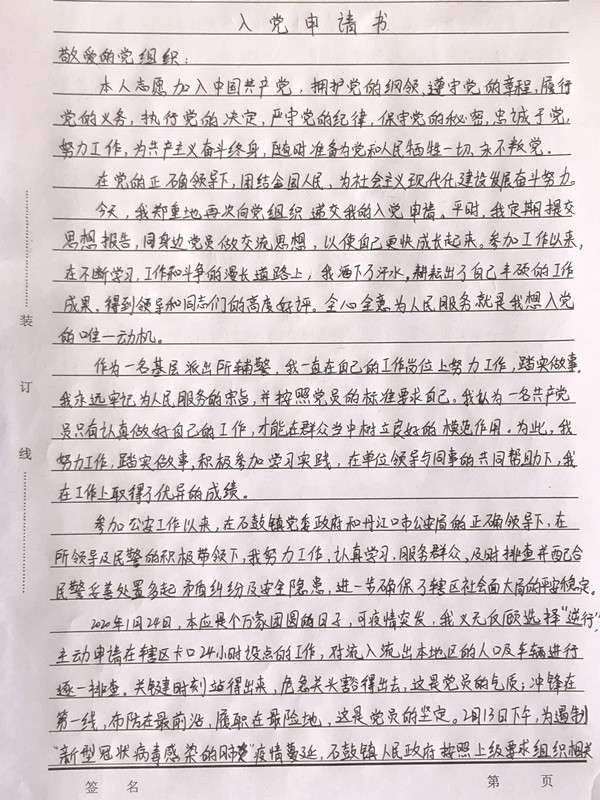 入党申请书
敬爱的党组织:
本人志愿加入中国共产党，拥护党的纲领、遵守党的章程，履行
党的义务，执行党的决定，严守党的纪律，保守党的秘密，忠诚于党，
努力工作，为共产主义奋斗终身，随时准备为党和人民牺牲一切、永不叛党。
在党的正确领导下，团结全国人民，为社会主义现代化建设发展奋斗努力。
今天，我郑重地再次向党组织递交我的入党申请。平时，我定期提交
思想报告，同身边党员做交流思想，以便自己更快成长起来。参加工作以来，
在不断学习，工作和斗争的漫长道路上，我洒下了汗水，耕耘出了自己丰硕的工作
成果，得到领导和同志们的高度好评。全心全意为人民服务就是我想入党
的唯一动机。
作为一名基层派出所辅警，我一直在自己的工作岗位上努力工作，踏实做事，
我永远牢记为人民服务的宗旨，并按照党员的标准要求自己。我认为一名共产党
员只有认真做好自己的工作，才能在群众当中树立良好的模范作用。为此，我
努力工作，踏实做事，积极参加学习实践，在单位领导与同事的共同帮助下，我
在工作上取得了优异的成绩。
参加公安工作以来，在石鼓镇党委政府和丹江口市公安局的正确领导下，在
所领导及民警的积极带领下，我努力工作，认真学习，服务群众，及时排查并配合
民警妥善处置多起矛盾纠纷及安全隐患，进一步确保了辖区社会面大局的平安稳定。
2020年1月24日，本应是个万家团圆的日子，可疫情突发，我义无反顾选择"逆行"，
主动申请在辖区卡口24小时设点的工作，对流入流出本地区的人口及车辆进行
逐一排查。关键时刻站得出来，危急关头豁得出去，这是党员的气质；冲锋在
第一线，布防在最前沿，履职在最险地，这是党员的坚定。2月13日下午，为遏制
"新型冠状病毒感染的肺炎"疫情蔓延，石鼓镇人民政府按照上级要求组织相关
装
订
线
签 名
第 页